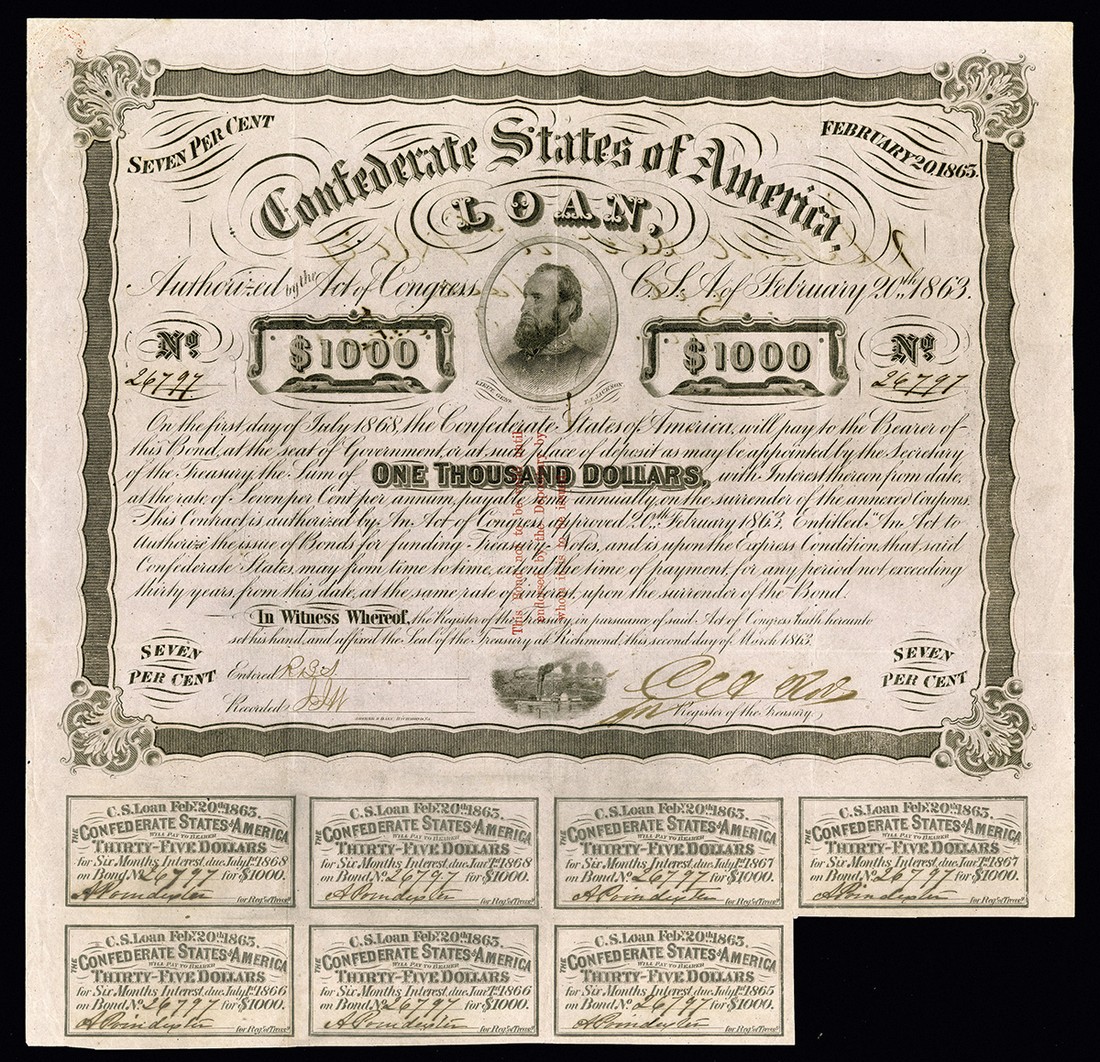 SEVEN PER CENT
FEBRUARY 20, 1863.
Confederate States of America,
LOAN,
Authorized by the Act of Congress C.S.A. of February 20th, 1863.
No.
$1000
$1000
No.
26797
26797
LIEUT. GENL. T.J. JACKSON
On the first day of July 1868, the Confederate States of America, will pay to the Bearer of
this Bond, at the seat of Government, or at such place of deposit as may be appointed by the Secretary
of the Treasury, the Sum of ONE THOUSAND DOLLARS, with Interest thereon from date,
at the rate of Seven per Cent per annum, payable semi annually, on the surrender of the annexed Coupons.
This Contract is authorized by An Act of Congress approved 20th February 1863. Entitled "An Act to
Authorize the issue of Bonds for funding Treasury Notes, and is upon the Express Condition that said
Confederate States, may from time to time, extend the time of payment, for any period not exceeding
thirty years, from this date, at the same rate of interest, upon the surrender of the Bond.
This Bond not to be valid until
endorsed by the Depositary by
whom it is to be issued
In Witness Whereof, the Register of the Treasury, in pursuance of said Act of Congress hath hereunto
set his hand, and affixed the Seal of the Treasury at Richmond, this second day of March 1863.
SEVEN
PER CENT
SEVEN
PER CENT
Entered
Recorded
Register of the Treasury
C.S. Loan Feby. 20th 1863.
THE CONFEDERATE STATES of AMERICA
WILL PAY TO BEARER
THIRTY-FIVE DOLLARS
for Six Months Interest, due July 1st 1868
on Bond No. 26797 for $1000.
A Poindexter for Reg. of Treasy.
C.S. Loan Feby. 20th 1863.
THE CONFEDERATE STATES of AMERICA
WILL PAY TO BEARER
THIRTY-FIVE DOLLARS
for Six Months Interest, due Jany. 1st 1868
on Bond No. 26797 for $1000.
A Poindexter for Reg. of Treasy.
C.S. Loan Feby. 20th 1863.
THE CONFEDERATE STATES of AMERICA
WILL PAY TO BEARER
THIRTY-FIVE DOLLARS
for Six Months Interest, due July 1st 1867
on Bond No. 26797 for $1000.
A Poindexter for Reg. of Treasy.
C.S. Loan Feby. 20th 1863.
THE CONFEDERATE STATES of AMERICA
WILL PAY TO BEARER
THIRTY-FIVE DOLLARS
for Six Months Interest, due Jany. 1st 1867
on Bond No. 26797 for $1000.
A Poindexter for Reg. of Treasy.
C.S. Loan Feby. 20th 1863.
THE CONFEDERATE STATES of AMERICA
WILL PAY TO BEARER
THIRTY-FIVE DOLLARS
for Six Months Interest, due July 1st 1866
on Bond No. 26797 for $1000.
A Poindexter for Reg. of Treasy.
C.S. Loan Feby. 20th 1863.
THE CONFEDERATE STATES of AMERICA
WILL PAY TO BEARER
THIRTY-FIVE DOLLARS
for Six Months Interest, due Jany. 1st 1866
on Bond No. 26797 for $1000.
A Poindexter for Reg. of Treasy.
C.S. Loan Feby. 20th 1863.
THE CONFEDERATE STATES of AMERICA
WILL PAY TO BEARER
THIRTY-FIVE DOLLARS
for Six Months Interest, due July 1st 1865
on Bond No. 26797 for $1000.
A Poindexter for Reg. of Treasy.